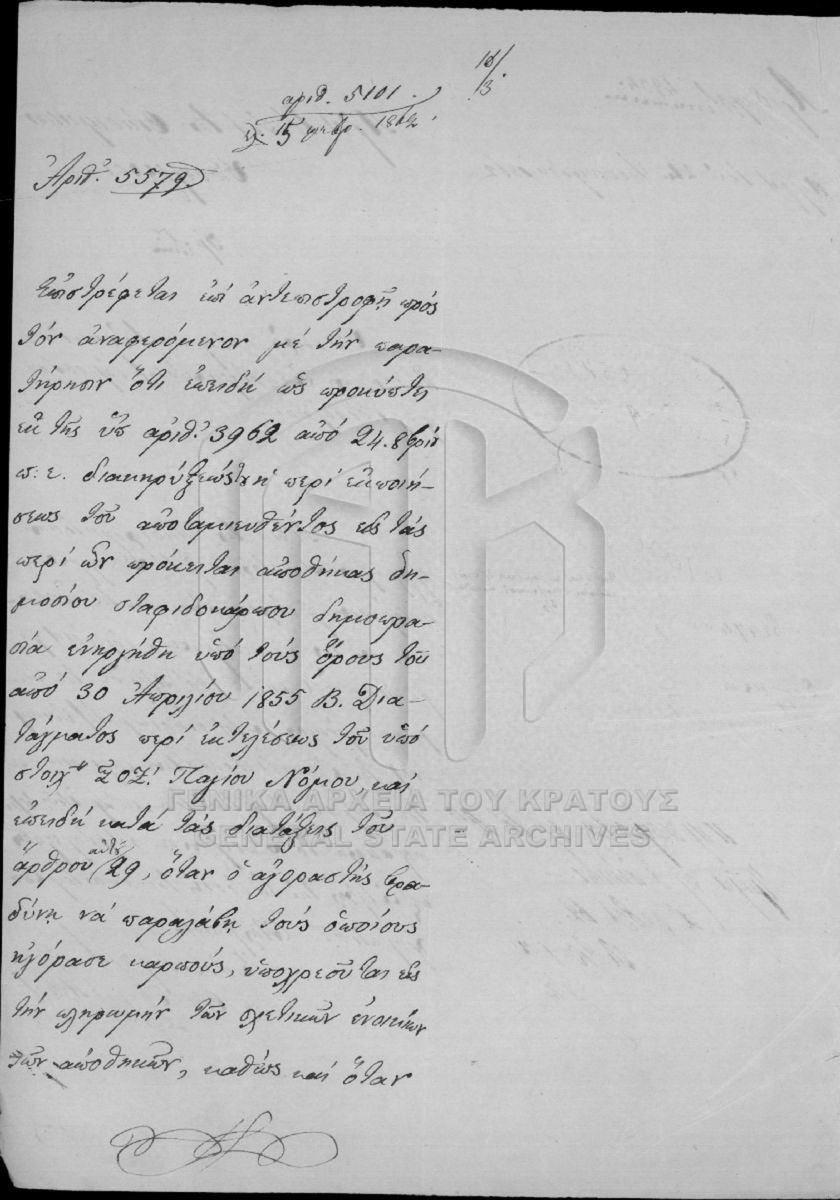 16/3
αριθ. 5101.
15 1862
Ἀριθ. 5579
Ἐπιστρέφεται ἐπί ἀντεπιστροφῇ πρός
τόν ἀναφερόμενον μέ τήν παρα-
τήρησιν ὅτι ἐπειδή ὡς προκύπτει
ἐκ τῆς ὑπ ἀριθ. 3962 ἀπό 24. 8βρίου
π. ε. διακηρύξεως ἡ περί ἐκποιή-
σεως τοῦ ἀποταμιευθέντος εἰς τάς
περί ὧν πρόκειται ἀποθήκας δη-
μοσίου σταφιδοκάρπου δημοπρα-
σία ἐνηργήθη ὑπό τούς ὅρους τοῦ
ἀπό 30 Ἀπριλίου 1855 Β. Δια-
τάγματος περί ἐκτελέσεως τοῦ ὑπό
στοιχ. ΞΟΖ! Παγίου Νόμου, καί
ἐπειδή κατά τάς διατάξεις τοῦ
ἄρθρου αὐτοῦ 29, ὅταν ὁ ἀγοραστής βρα-
δύνῃ νά παραλάβῃ τούς ὁποίους
ἠγόρασε καρπούς, ὑποχρεοῦται εἰς
τήν πληρωμήν τῶν σχετικῶν ἐνοικίων
τῶν ἀποθηκῶν, καθώς καί ὅταν
ΓΕΝΙΚΑ ΑΡΧΕΙΑ ΤΟΥ ΚΡΑΤΟΥΣ
GENERAL STATE ARCHIVES